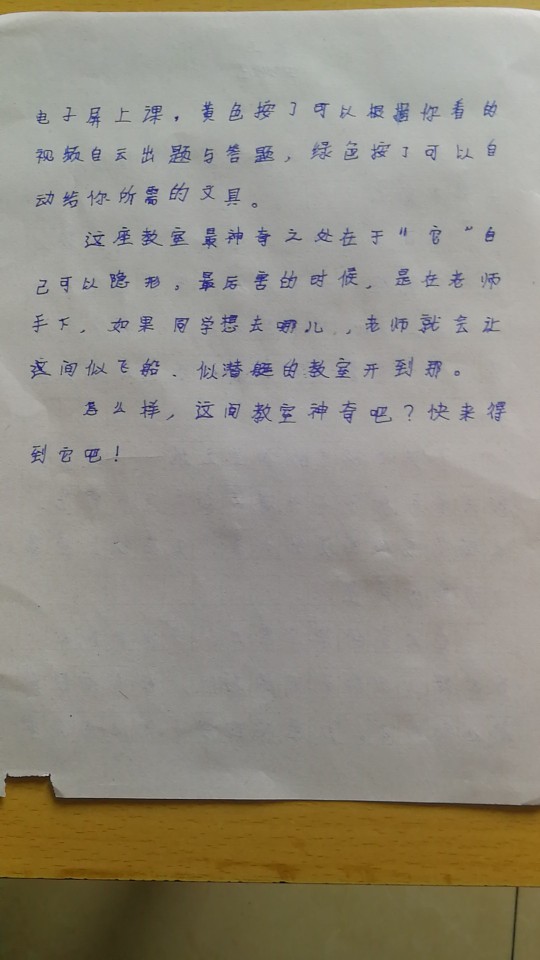 电子屏上课，黄色按了可以根据你看的
视频自云出题与答题，绿色按了可以自
动给你所需的文具。
这座教室最神奇之处在于“它”自
己可以隐形，最后害的时候，是在老师
手下，如果同学想去哪儿，老师就会让
这间似飞船、似潜艇的教室开到那。
怎么样，这间教室神奇吧？快来得
到它吧！